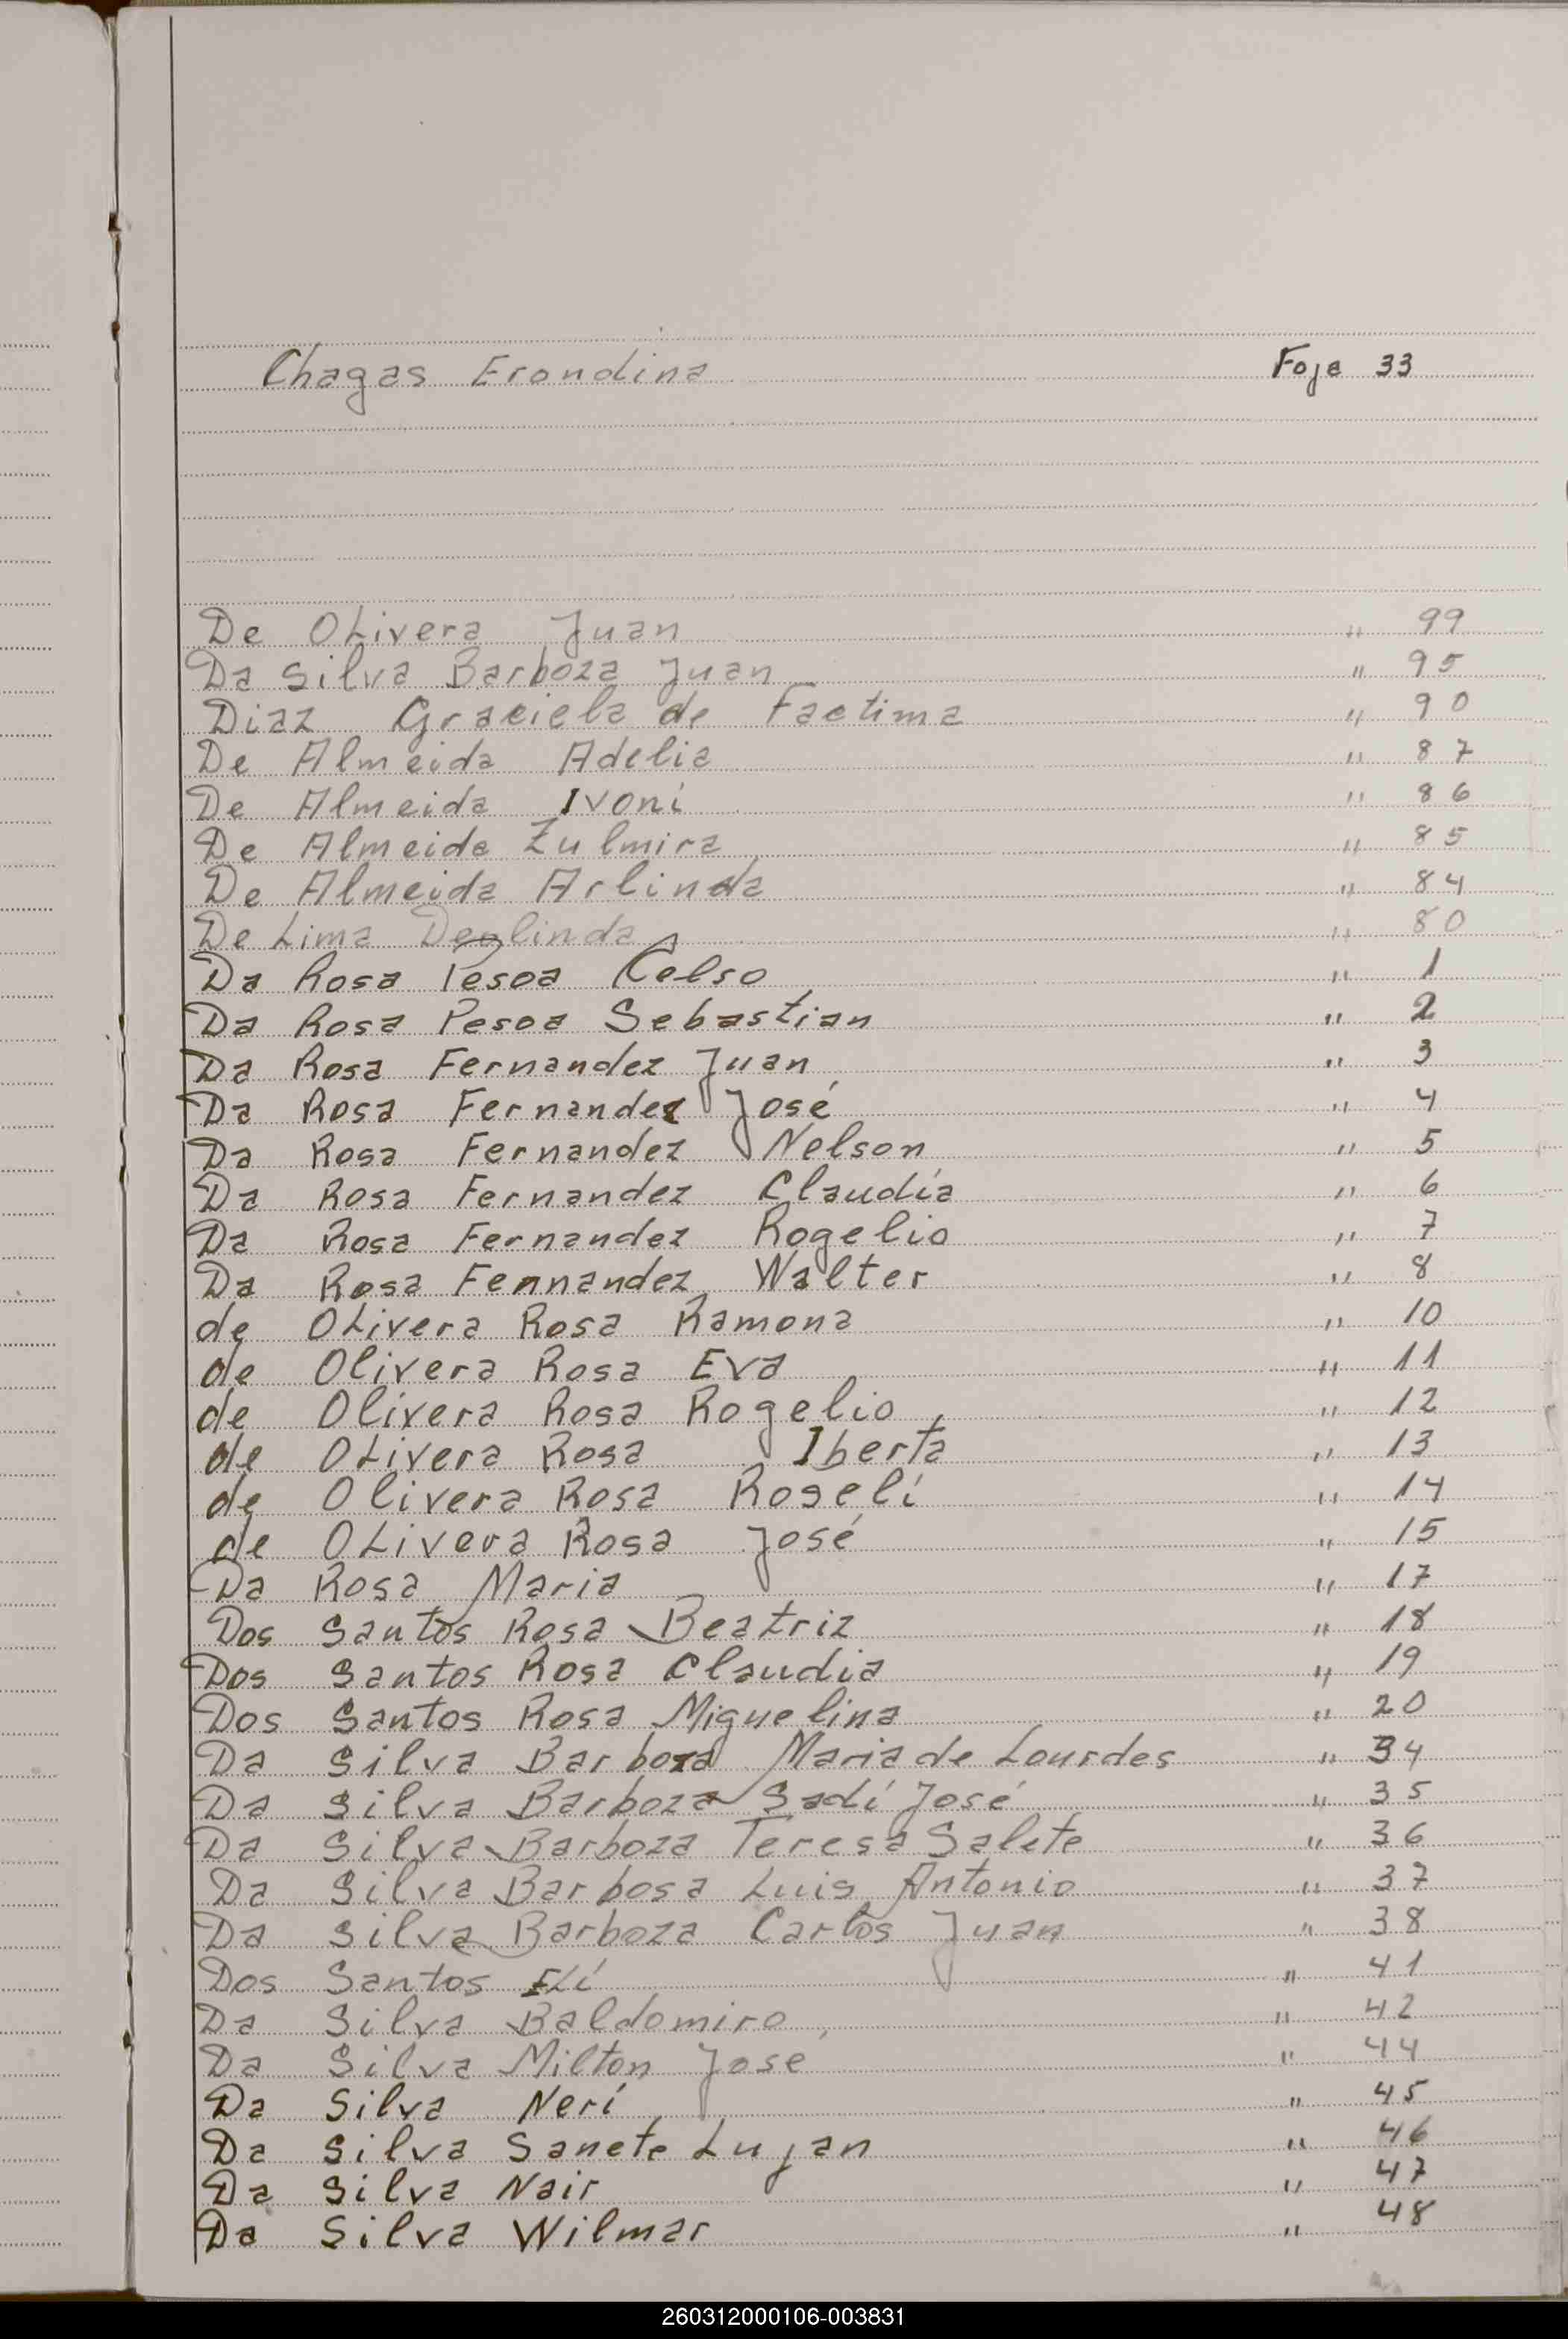 Chagas Erondina Foja 33
De Olivera Juan " 99
Da Silva Barboza Juan " 95
Diaz Graciela de Factima " 90
De Almeida Adelia " 87
De Almeida Ivoni " 86
De Almeida Zulmira " 85
De Almeida Arlinda " 84
De Lima Deolinda " 80
Da Rosa Pesoa Celso " 1
Da Rosa Pesoa Sebastian " 2
Da Rosa Fernandez Juan " 3
Da Rosa Fernandez José " 4
Da Rosa Fernandez Nelson " 5
Da Rosa Fernandez Claudia " 6
Da Rosa Fernandez Rogelio " 7
Da Rosa Fernandez Walter " 8
de Olivera Rosa Ramona " 10
de Olivera Rosa Eva " 11
de Olivera Rosa Rogelio " 12
de Olivera Rosa Iberta " 13
de Olivera Rosa Roseli " 14
de Olivera Rosa José " 15
Da Rosa Maria " 17
Dos Santos Rosa Beatriz " 18
Dos Santos Rosa Claudia " 19
Dos Santos Rosa Miguelina " 20
Da Silva Barboza Maria de Lourdes " 34
Da Silva Barboza Sadí José " 35
Da Silva Barboza Teresa Salete " 36
Da Silva Barbosa Luis Antonio " 37
Da Silva Barboza Carlos Juan " 38
Dos Santos Elí " 41
Da Silva Baldomiro " 42
Da Silva Milton José " 44
Da Silva Neri " 45
Da Silva Sanete Lujan " 46
Da Silva Nair " 47
Da Silva Wilmar " 48
260312000106-003831